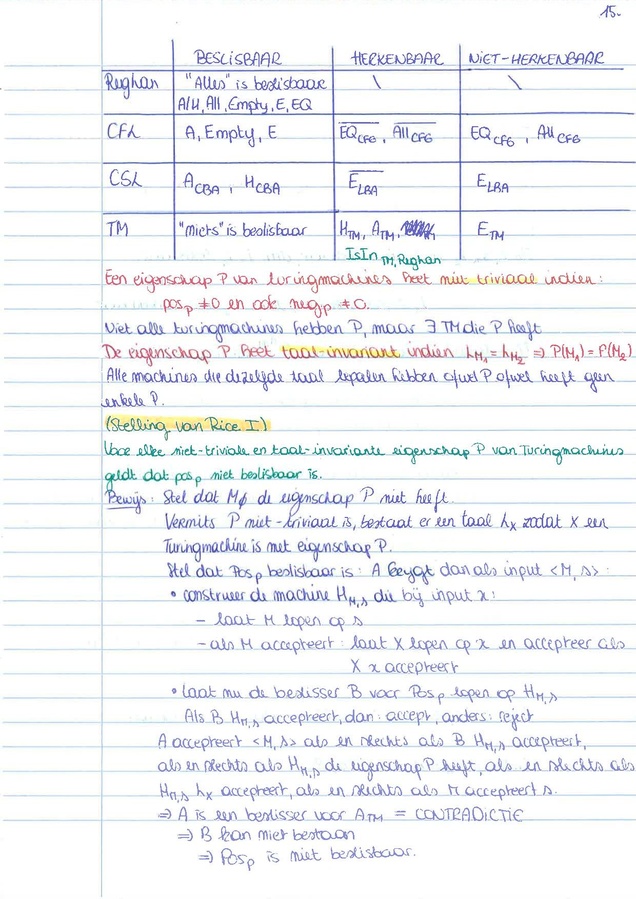 15.
BESLISBAAR HERKENBAAR NIET-HERKENBAAR
Reghan "Alles" is beslisbaar \ \
A/H, All, Empty, E, EQ
CFL A, Empty, E \overline{EQ_{CFG}}, \overline{All_{CFG}} EQ_{CFG}, All_{CFG}
CSL A_{CBA}, H_{CBA} \overline{E_{LBA}} E_{LBA}
TM "Niets" is beslisbaar H_{TM}, A_{TM}, E_{TM}
IsIn_{TM,Reghan}
Een eigenschap P van turingmachines heet niet triviaal indien:
pos_p ≠ 0 en ook neg_p ≠ 0.
Niet alle turingmachines hebben P, maar ∃ TM die P heeft
De eigenschap P heet taal-invariant indien L_{M_1} = L_{M_2} ⇒ P(M_1) = P(M_2)
Alle machines die dezelfde taal bepalen hebben ofwel P ofwel heeft geen
enkele P.
(Stelling van Rice I)
Voor elke niet-triviale en taal-invariante eigenschap P van Turingmachines
geldt dat pos_p niet beslisbaar is.
Bewijs: Stel dat M_ø de eigenschap P niet heeft.
Vermits P niet-triviaal is, bestaat er een taal L_X zodat X een
Turingmachine is met eigenschap P.
Stel dat Pos_p beslisbaar is: A krijgt dan als input <M, s>:
• construeer de machine H_{M,s} die bij input x:
- laat M lopen op s
- als M accepteert: laat X lopen op x en accepteer als
X x accepteert
• Laat nu de beslisser B voor Pos_p lopen op H_{M,s}
Als B H_{M,s} accepteert, dan: accept, anders: reject
A accepteert <M, s> als en slechts als B H_{M,s} accepteert,
als en slechts als H_{M,s} de eigenschap P heeft, als en slechts als
H_{M,s} L_X accepteert, als en slechts als M accepteert s.
⇒ A is een beslisser voor A_{TM} = CONTRADICTIE
⇒ B kan niet bestaan
⇒ Pos_p is niet beslisbaar.